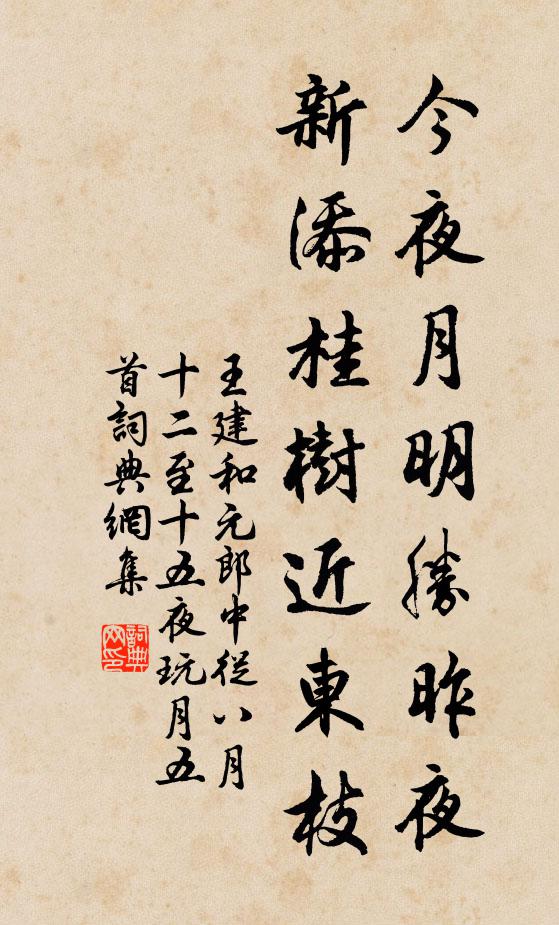 今夜月明勝昨夜
新添桂樹近東枝
王建和元郎中從八月
十二至十五夜玩月五
首詞典網集
詞典網印